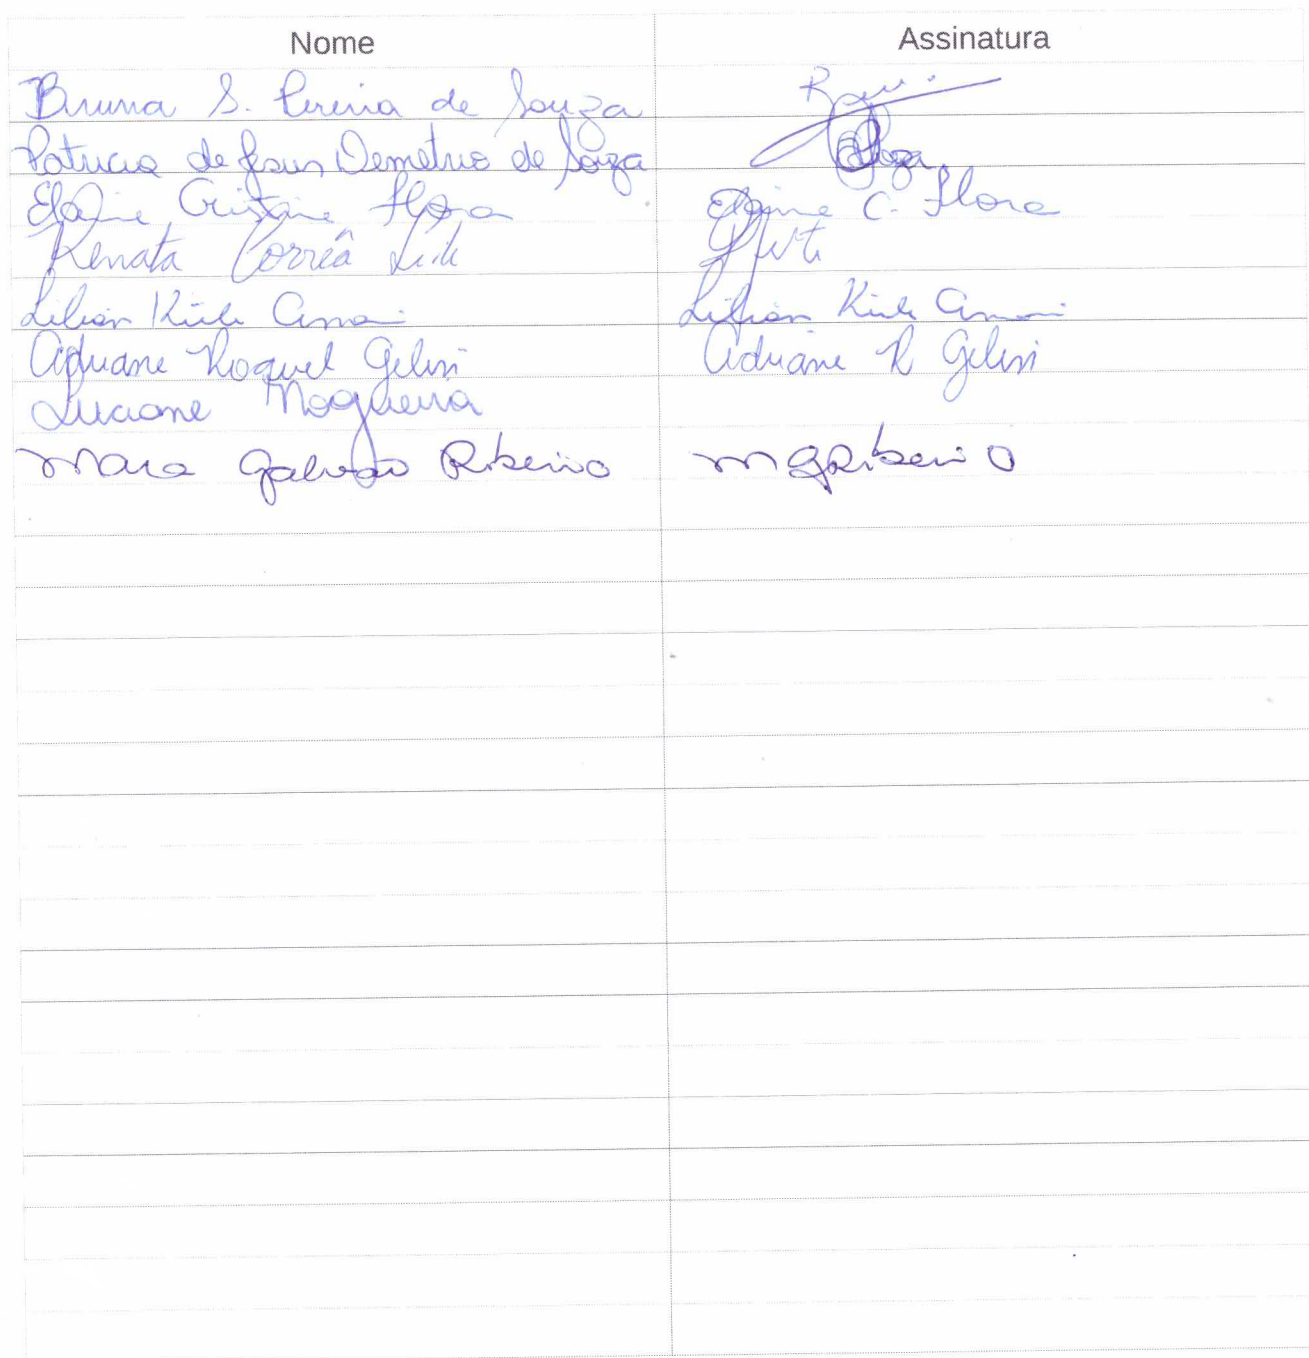 Nome Assinatura
Bruna S. Pereira de Souza
Patricia de Jesus Demetrio de Souza
Elaine Cristine Flora Elaine C. Flora
Renata Corrêa Leite
Lilian Lilian
Adriane Raquel Gelini Adriane R Gelini
Luciane Nogueira
Mara Galvão Ribeiro MGRibeiro